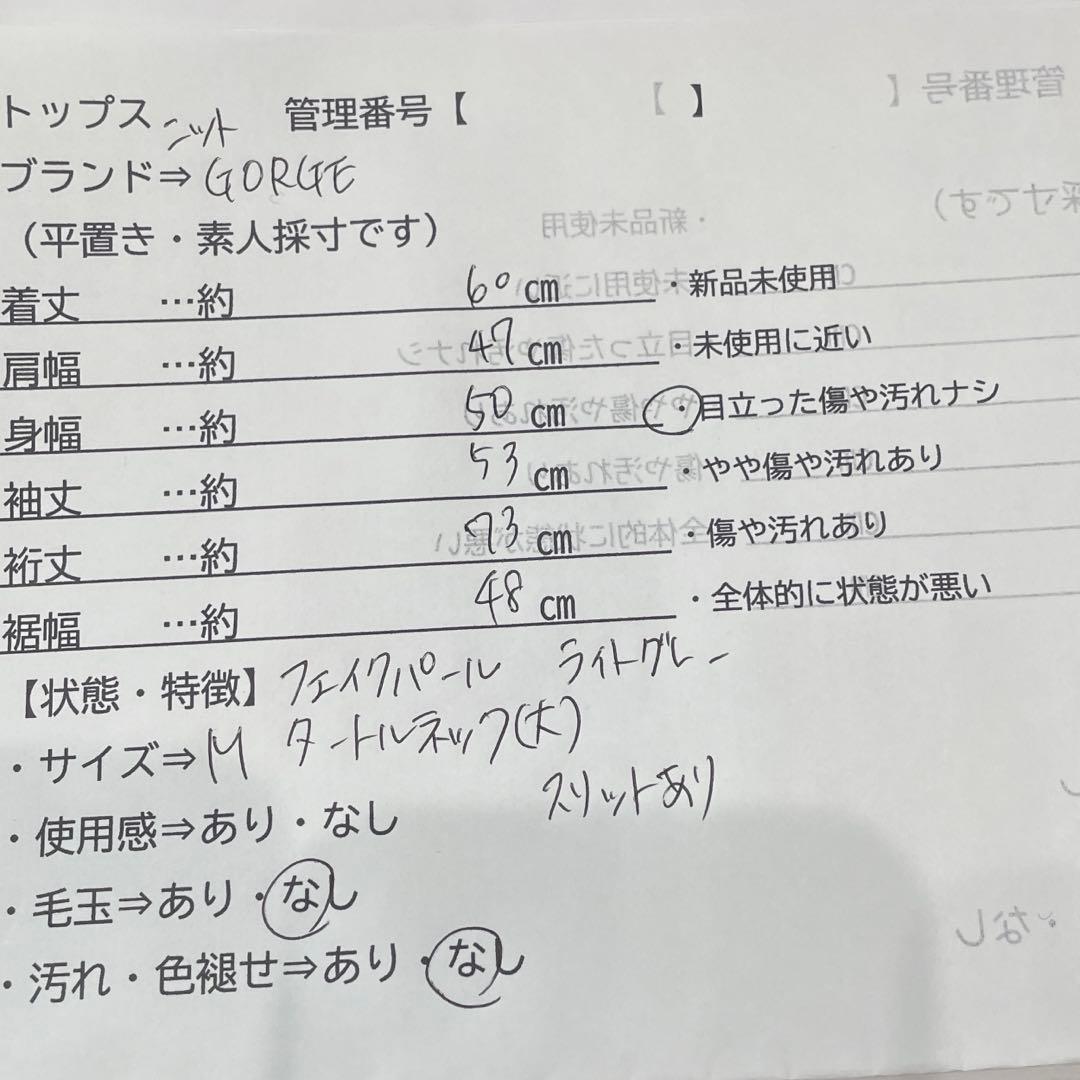 トップス ニット 管理番号【 】
ブランド⇒ GORGE
（平置き・素人採寸です）
着丈 …約 60 cm ・新品未使用
肩幅 …約 47 cm ・未使用に近い
身幅 …約 50 cm ・目立った傷や汚れナシ
袖丈 …約 53 cm ・やや傷や汚れあり
裄丈 …約 73 cm ・傷や汚れあり
裾幅 …約 48 cm ・全体的に状態が悪い
【状態・特徴】 フェイクパール ライトグレー
・サイズ⇒ M タートルネック(大)
スリットあり
・使用感⇒あり・なし
・毛玉⇒あり・なし
・汚れ・色褪せ⇒あり・なし